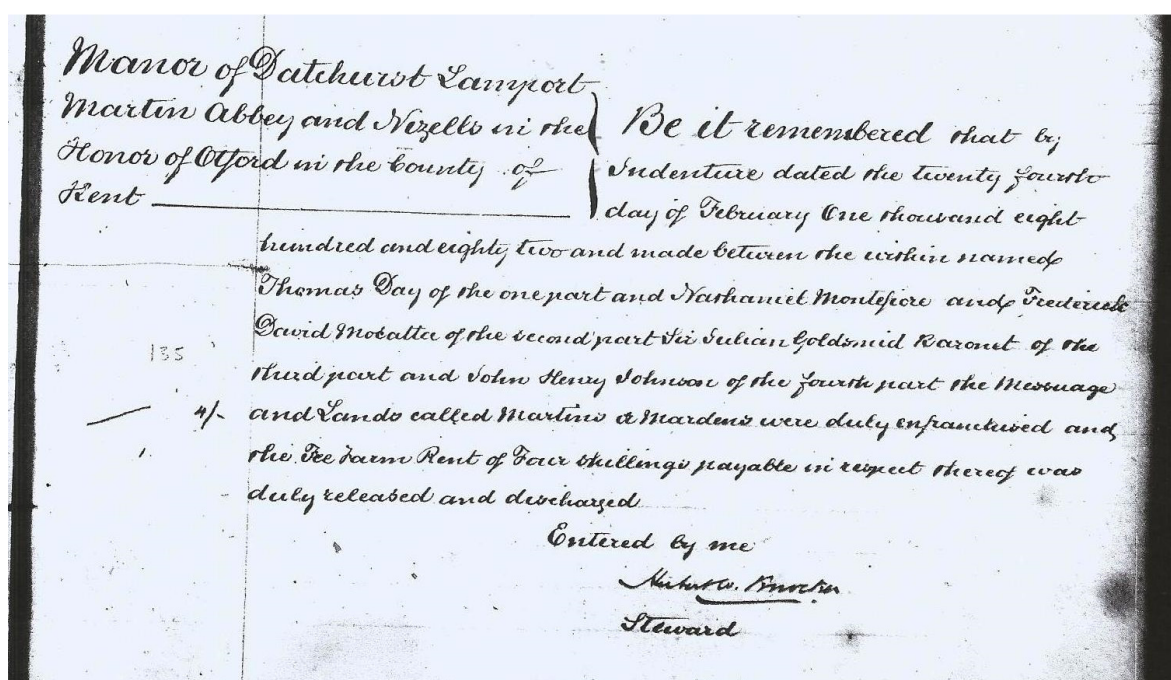 Manor of Datchurst Lamport
Martin Abbey and Nizells in the
Honor of Otford in the County of
Kent
Be it remembered that by
Indenture dated the twenty fourth
day of February One thousand eight
hundred and eighty two and made between the within named
Thomas Day of the one part and Nathaniel Montefiore and Frederick
David Mocatta of the second part Sir Julian Goldsmid Baronet of the
135
third part and John Henry Johnson of the fourth part the Messuage
4/- and Lands called Martins or Mardens were duly enfranchised and
the Fee Farm Rent of Four shillings payable in respect thereof was
duly released and discharged
Entered by me
Herbert W. Knocker
Steward